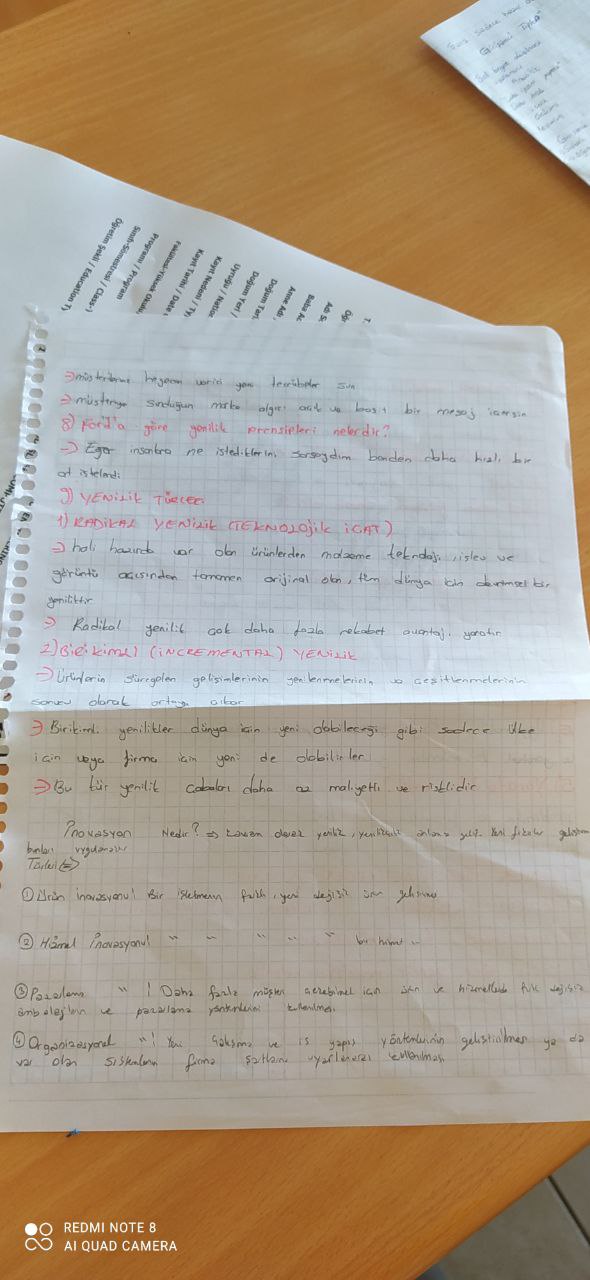 Öğretim Şekli / Education Ty
Sınıfı-Sömestresi / Class-
Programı / Program
Fakültesi-Yüksek Okulu
Kayıt Tarihi / Date
Kayıt Nedeni / Ty
Uyruğu / Nation
Doğum Yeri /
Doğum Tari
Anne Adı
Baba Ad
Adı So
Öğr
T.
→ müşterilerine heyecan verici yeni tecrübeler sun
→ müşteriye sunduğun marka algısı açık ve basit bir mesaj içersin
8) Ford'a göre yenilik prensipleri nelerdir?
→ Eğer insanlara ne istediklerini sorsaydım benden daha hızlı bir
at istelerdi
9) YENİLİK TÜRLERİ
1) RADİKAL YENİLİK (TEKNOLOJİK İCAT)
→ hali hazırda var olan ürünlerden malzeme teknoloji, işlev ve
görüntü açısından tamamen orijinal olan, tüm dünya için devrimsel bir
yeniliktir
→ Radikal yenilik çok daha fazla rekabet avantajı yaratır
2) BİRİKİMLİ (İNCREMENTAL) YENİLİK
→ Ürünlerin süregelen gelişimlerinin yenilenmelerinin ve çeşitlenmelerinin
sonucu olarak ortaya çıkar
→ Birikimli yenilikler dünya için yeni olabileceği gibi sadece ülke
için veya firma için yeni de olabilirler
→ Bu tür yenilik çabaları daha az maliyetli ve risklidir
İnovasyon Nedir? → yenilik, yenilikçilik Yeni fikirler
bunları uygulamak
Türleri
① Ürün inovasyonu! Bir işletmenin farklı, yeni değişik ürün gelişmesi
② Hizmet İnovasyonu! " " " " " bir hizmet "
③ Pazarlama " ! Daha fazla müşteri için ürün ve hizmetlerde fark değişik
ambalajların ve pazarlama yöntemlerini kullanılması
④ Organizasyonel " ! Yeni çalışma ve iş yapış yöntemlerinin geliştirilmesi ya da
var olan sistemlerin firma şartlarına uyarlanarak kullanılması
REDMI NOTE 8
AI QUAD CAMERA